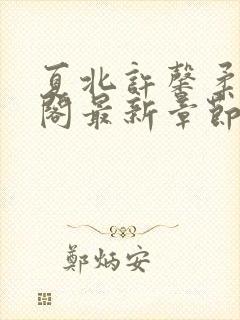 夏北許馨柔
閣最新章節
鄭炳安